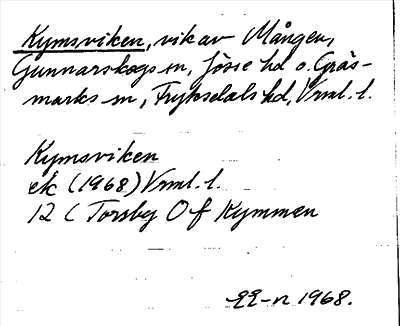 Kymsviken, vik av Mången,
Gunnarskogs sn, Jösse hd o. Gräs-
marks sn, Fryksdals hd, Vrml. l.
Kymsviken
ek (1968) Vrml. l.
12 C Torsby Of Kymmen
1968.